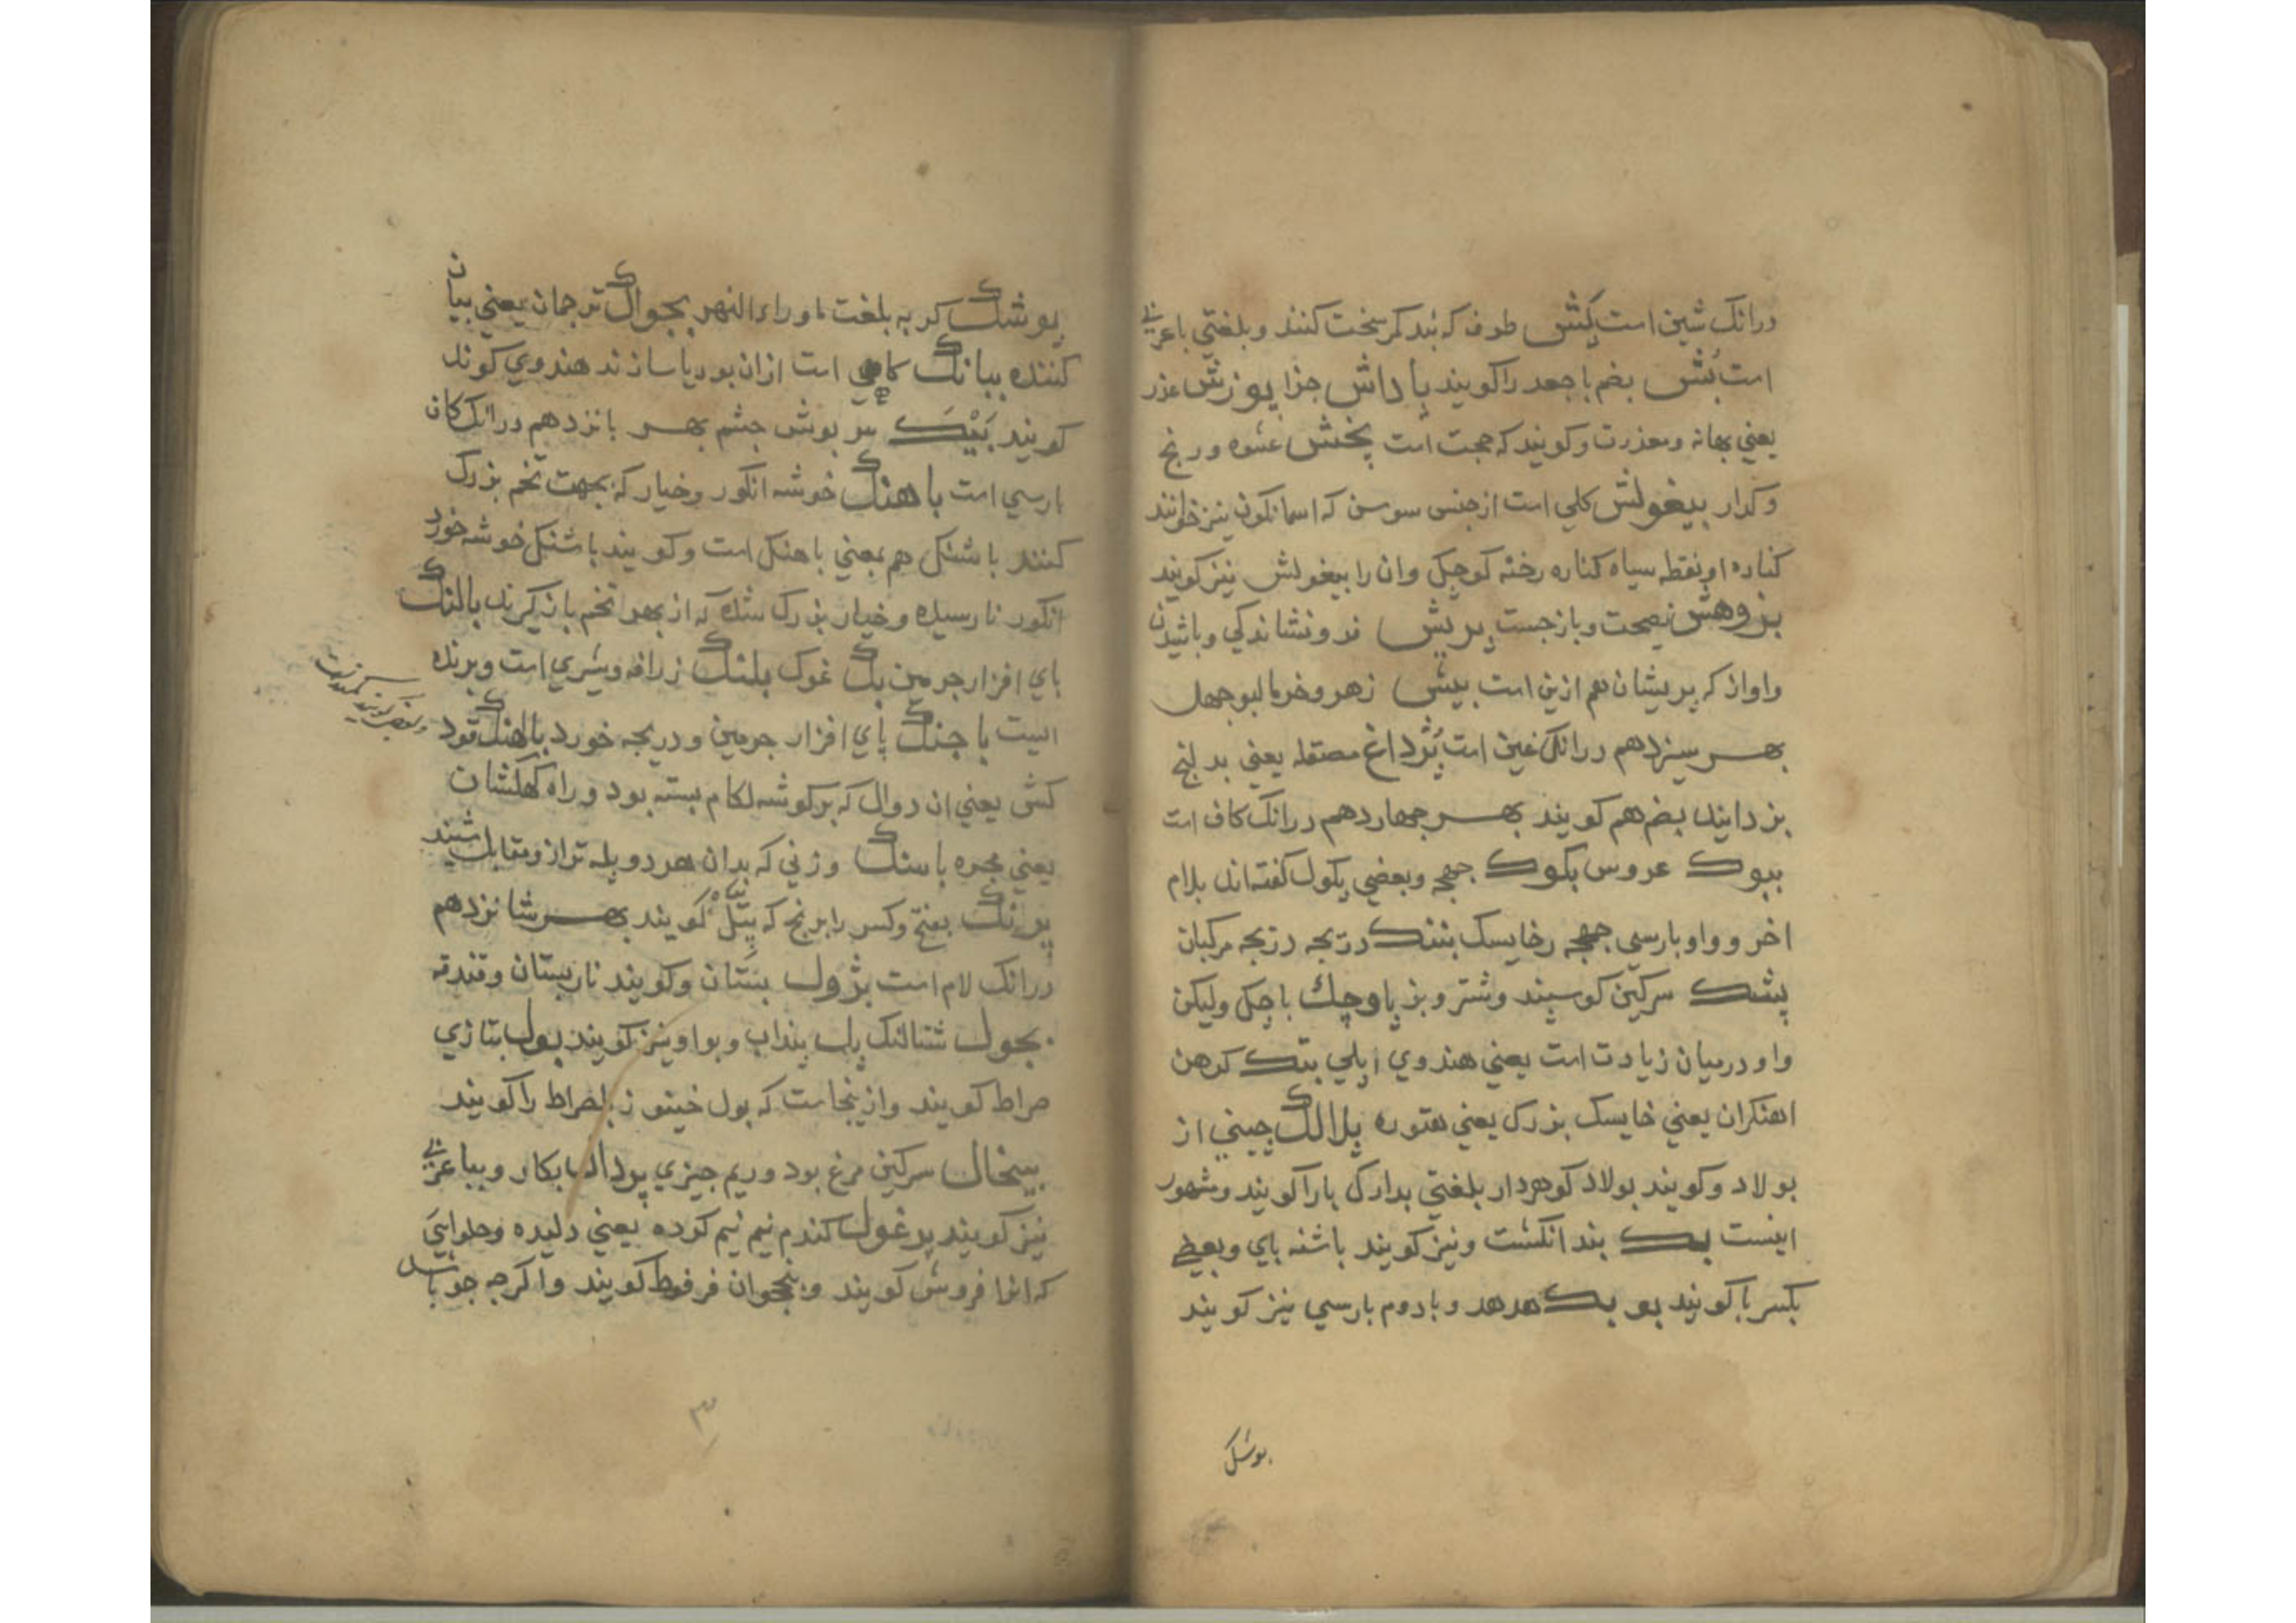 درانک شین است کَبش طرف که بُد کمر سخت کنند و بلغتی با عربی
است بُش بضم با جعد را کویند پاداش جزا پوزش عذر
یعنی بهانه و معذرت و کویند که حجت است بخش عشوه و رنج
و کدار بیغولش کلی است از جنس سوسن که اسمانکون نیز خوانند
کناره او نقطه سیاه کناره رخنه کوچک و ان را بیغولش نیز کویند
پزوهش نصیحت و باز جست پریش ند و نشاندکی و باشیدن
و اواز که پریشان هم ازین است بیش زهر و خرما ابوجهل
بهر سیزدهم درانک غین است بُزداغ مصقله یعنی بدانچ
بزدایند بضم هم کویند بهر جهاردهم درانک کاف است
ببوک عروس بکوک جهجه و بعضی پکول کفته اند بلام
اخر و واو بارسی جهجه رخایسک بننک دریجه دریجه مرکبان
پشک سرکین کوسپند و شتر و بز پاوچك باچک ولیکن
واو درمیان زیادت است یعنی هندوی اپلی بتک کوهن
اهنکران یعنی خایسک بزرک یعنی هتوره پلالک چینی از
بولاد و کویند بولاد کوهردار بلغتی بدارک بارا کویند و مشهور
اینست بک بند انکشت و نیز کویند باشنه بای و بعضی
بکسر با کویند بوبک هدهد و با دوم بارسی نیز کویند
بوشک
پوشک کربه بلغت ماوراء النهر بجوال ترجمان یعنی بیان
کننده ببانک کاهی است ازان بوریا سازند هندوی کوندل
کویند بَیْنَک سر بوش چشم بهر بانزدهم درانک کاف
بارسی است باهنک خوشه انکور و خیار که بجهت تخم بزرک
کنند باشنک هم بمعنی باهنک است و کویند باشنک خوشه خورد
انکور نارسیده و خیار بزرک شده که از بهر تخم بان کیرند بالنک
بای افزار جرمین بک غوک بلنک زرافه و شیری است و برنده
ایست باجنک پای افزار جرمین و دریجه خورد بالهنک قود
کش یعنی ان دوال که بر کوشه لکام بسته بود و راه کهکشان
یعنی مجره باسنک وزنی که بدان هر دو پله ترازو مقابل باشند
پورنک بفتح و کسر را برنج که پیتل کویند بهر شانزدهم
درانک لام است بژول بستان و کویند نارپستان و قندقه
بجول شتالنک پل بنداب و بواو نیز کویند بول بتازی
صراط کویند و ازینجاست که بول خینوز بل صراط را کویند
بیخال سرکین مرغ بود و ریم جیزی پودال بکار و ببا عربی
نیز کویند پرغول کندم نیم نیم کرده یعنی دلیده و حلوایی
که انرا فروش کویند و بنجوان فرفوط کویند و اکرجه جو باشد
۳